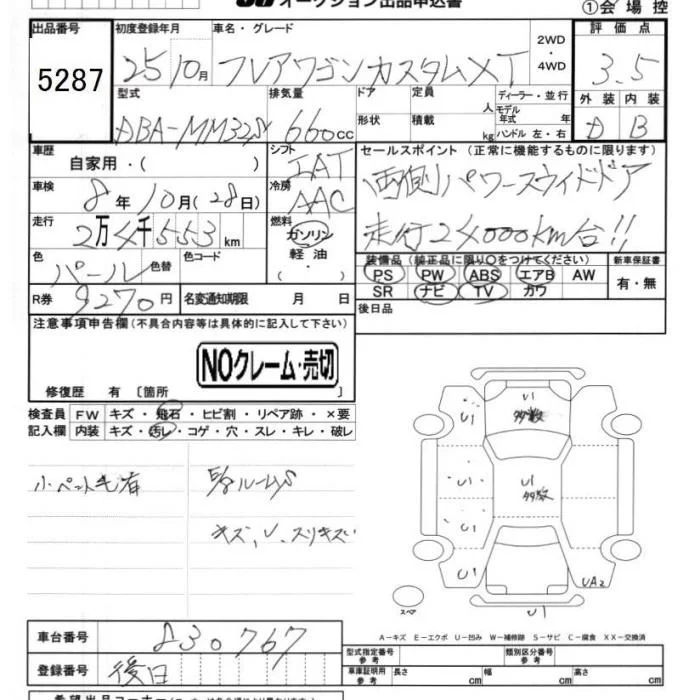 オークション出品申込書
①会場控
出品番号 初度登録年月 車名・グレード 2WD・4WD 評価点
5287 25 10月 フレアワゴンカスタム XT 3.5
型式 排気量 ドア 定員 人 ディーラー・並行 外装 内装
モデル年式 年
DBA-MM32S 660cc 形状 積載 kg ハンドル 左・右 D B
車歴 自家用・( ) シフト IAT セールスポイント (正常に機能するものに限ります)
車検 8年10月(28日) 冷房 AAC 両側パワースライドドア
走行 2万4千553km 燃料 ガソリン・軽油・( ) 走行24000km台!!
色 パール 色替 色コード
装備品 (純正品に限り○をつけてください) 新車保証書
PS PW ABS エアB AW 有・無
SR ナビ TV カワ
R券 9270円 名変通知期限 月 日
後日品
注意事項申告欄(不具合内容等は具体的に記入して下さい)
NOクレーム・売切
修復歴 有 〔箇所 〕
検査員 FW キズ・飛石・ヒビ割・リペア跡・×要
記入欄 内装 キズ・汚レ・コゲ・穴・スレ・キレ・破レ
小ペット毛有
キズ、U、スリキズ
U1 U1 多数
U1 U1 多数
U1
U1 UA2
スペア U1
A-キズ E-エクボ U-凹み W-補修跡 S-サビ C-腐食 XX-交換済
車台番号 830767
登録番号 後日
型式指定番号 参考 類別区分番号 参考
車庫証明用 参考 長さ cm 幅 cm 高さ cm